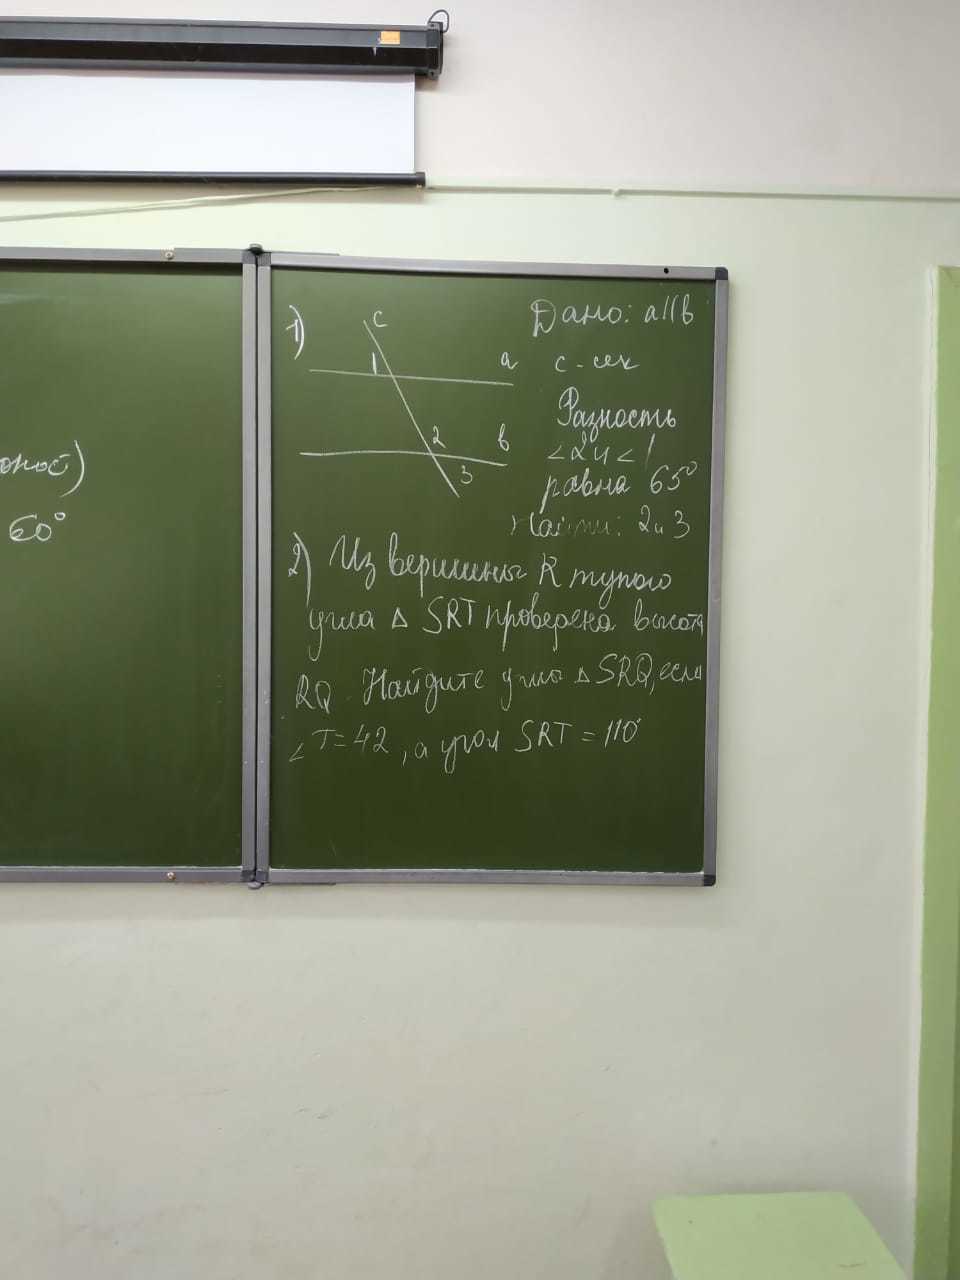 60°
1)
c
1
a
2
в
3
Дано: a||в
c - сек
Разность
<2 и <1
равна 65°
Найти: 2 и 3
2) Из вершины R тупого
угла △ SRT проверена высота
RQ. Найдите углы △ SRQ, если
< T=42, а угол SRT = 110°